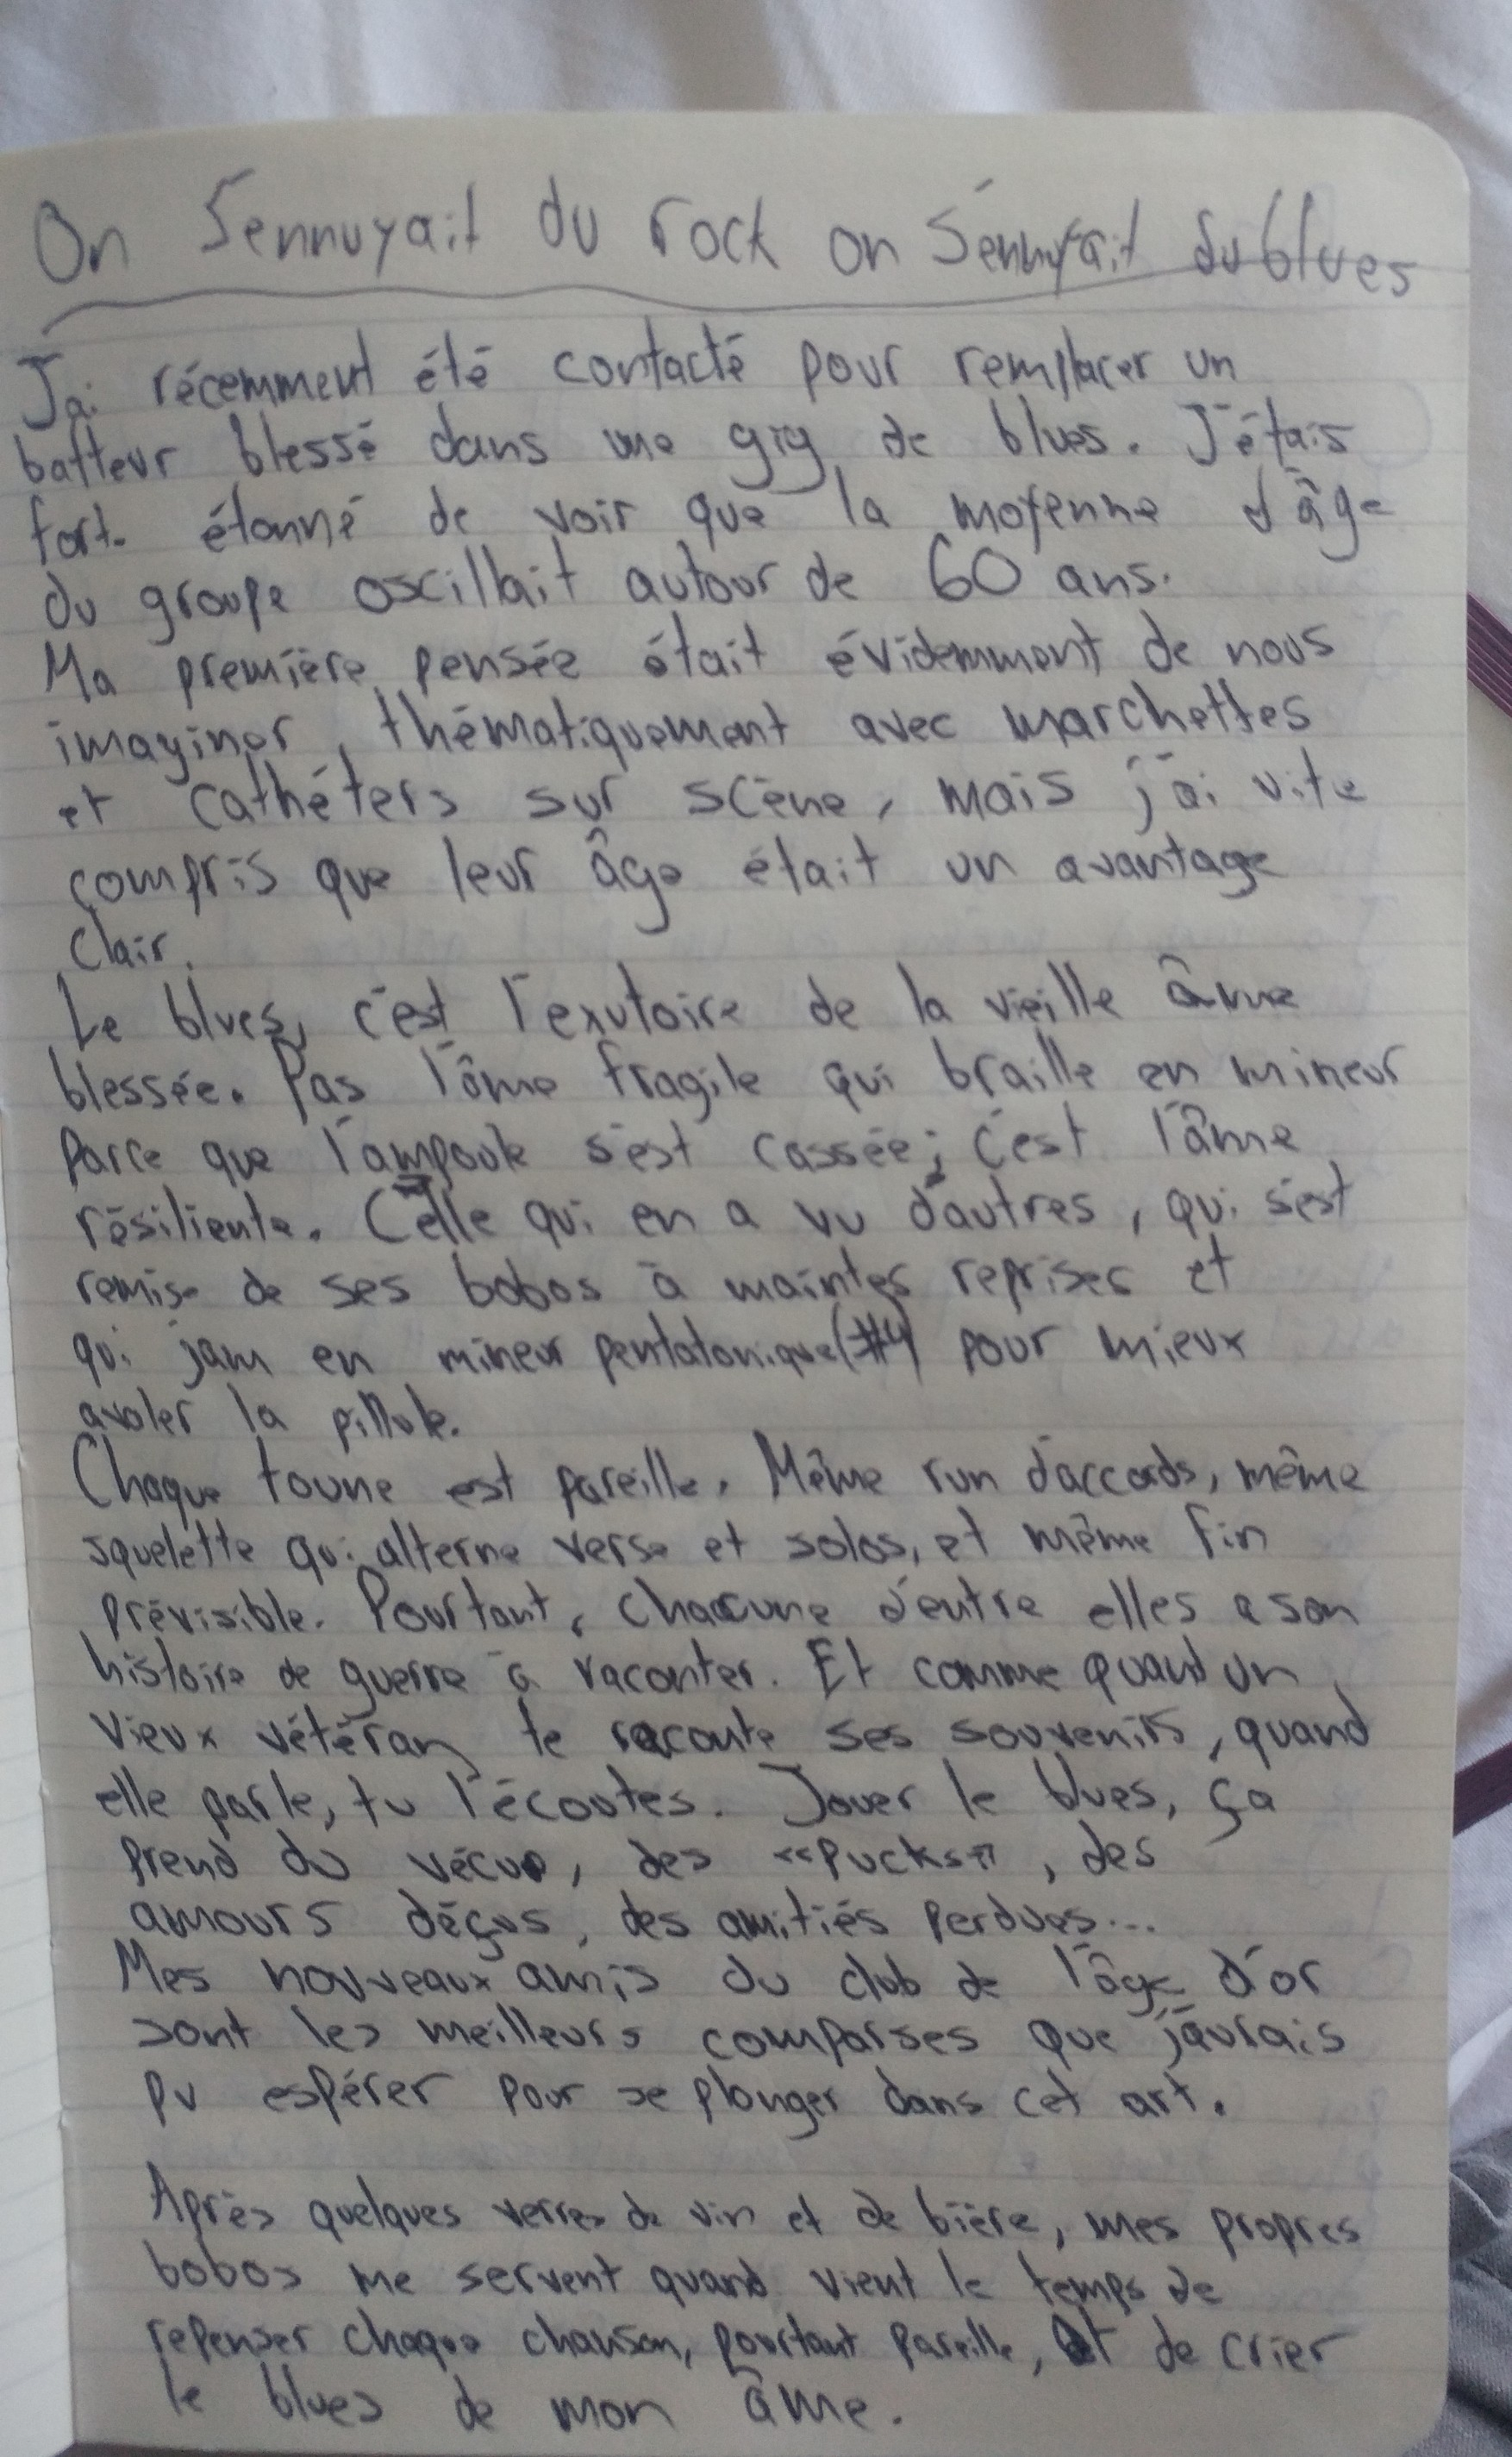 On s'ennuyait du rock on s'ennuyait du blues
J'ai récemment été contacté pour remplacer un
batteur blessé dans une gig de blues. J'étais
fort étonné de voir que la moyenne d'âge
du groupe oscillait autour de 60 ans.
Ma première pensée était évidemment de nous
imaginer, thématiquement avec marchettes
et cathéters sur scène, mais j'ai vite
compris que leur âge était un avantage
clair.
Le blues, c'est l'exutoire de la vieille âme
blessée. Pas l'âme fragile qui braille en mineur
parce que l'ampoule s'est cassée; c'est l'âme
résiliente. Celle qui en a vu d'autres, qui s'est
remise de ses bobos à maintes reprises et
qui jam en mineur pentatonique(#4) pour mieux
avaler la pillule.
Chaque toune est pareille. Même run d'accords, même
squelette qui alterne verse et solos, et même fin
prévisible. Pourtant, chacune d'entre elles a son
histoire de guerre à raconter. Et comme quand un
vieux vétéran te raconte ses souvenirs, quand
elle parle, tu l'écoutes. Jouer le blues, ça
prend du vécu, des «pucks», des
amours déçus, des amitiés perdues...
Mes nouveaux amis du club de l'âge d'or
sont les meilleurs comparses que j'aurais
pu espérer pour se plonger dans cet art.
Après quelques verres de vin et de bière, mes propres
bobos me servent quand vient le temps de
repenser chaque chanson, pourtant pareille, et de crier
le blues de mon âme.